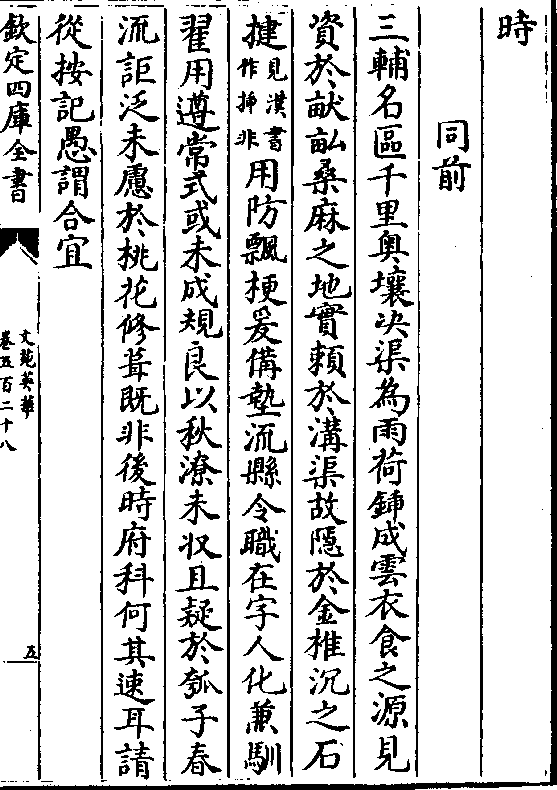 時
同前
三輔名區千里奥壤决渠為雨荷鍤成雲衣食之源見
資於畎畝桑麻之地實頼於溝渠故隱於金椎沉之石
揵見漢書作揷非用防飄梗爰備墊流縣令職在字人化兼馴
翟用遵常式或未成規良以秋潦未収且疑於瓠子春
流詎泛未慮於桃花修葺既非後時府科何其速耳請
從按記愚謂合宜
欽定四庫全書
文苑英華
卷五百二十八
五